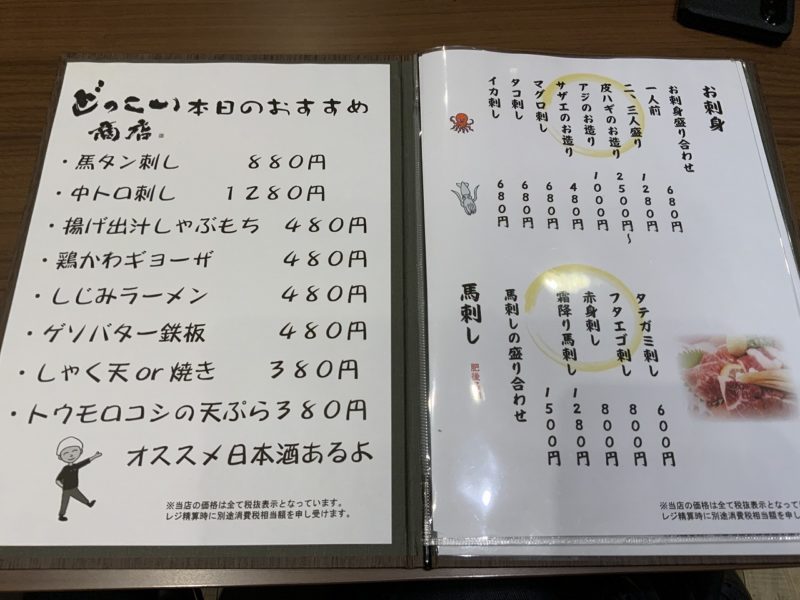 どっこい商店 本日のおすすめ
・馬タン刺し 880円
・中トロ刺し 1280円
・揚げ出汁しゃぶもち 480円
・鶏かわギョーザ 480円
・しじみラーメン 480円
・ゲソバター鉄板 480円
・しゃく天or焼き 380円
・トウモロコシの天ぷら380円
オススメ日本酒あるよ
※当店の価格は全て税抜表示となっています。
レジ精算時に別途消費税相当額を申し受けます。
お刺身
お刺身盛り合わせ
一人前 680円
二、三人盛り 1280円
皮ハギのお造り 2500円～
アジのお造り 1000円
サザエのお造り 480円
マグロ刺し 680円
タコ刺し 680円
イカ刺し 680円
タテガミ刺し 600円
フタエゴ刺し 800円
赤身刺し 800円
霜降り馬刺し 1280円
馬刺しの盛り合わせ 1500円
馬刺し 肥後
※当店の価格は全て税抜表示となって
レジ精算時に別途消費税相当額を申し